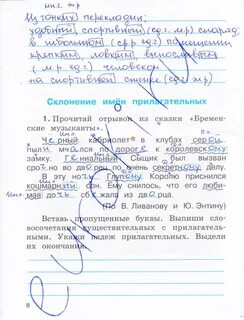 мн.ч. тр
Из тонких перекладин,
удобный, спортивный (ед.ч. м.р) снаряд,
в школьном (ср.р ед.ч) помещении
крепким, ловким, выносливым
(м.р ед.ч) человеком
на спортивной сценке (ед.ч
Склонение имён прилагательных
1. Прочитай отрывок из сказки «Бремен-
ские музыканты».
Чёрный кабриолет* в клубах серой
пыли мчался по дороге к королевскому
замку. Гениальный Сыщик был вызван
срочно во дворец по очень секретному делу.
В эту ночь Глупому Королю приснился
кошмарный сон. Ему снилось, что его люби-
мая дочь сбежала из дворца.
(По В. Ливанову и Ю. Энтину)
Вставь пропущенные буквы. Выпиши сло-
восочетания существительных с прилагатель-
ными. Укажи падеж прилагательных. Выдели
их окончания.
8